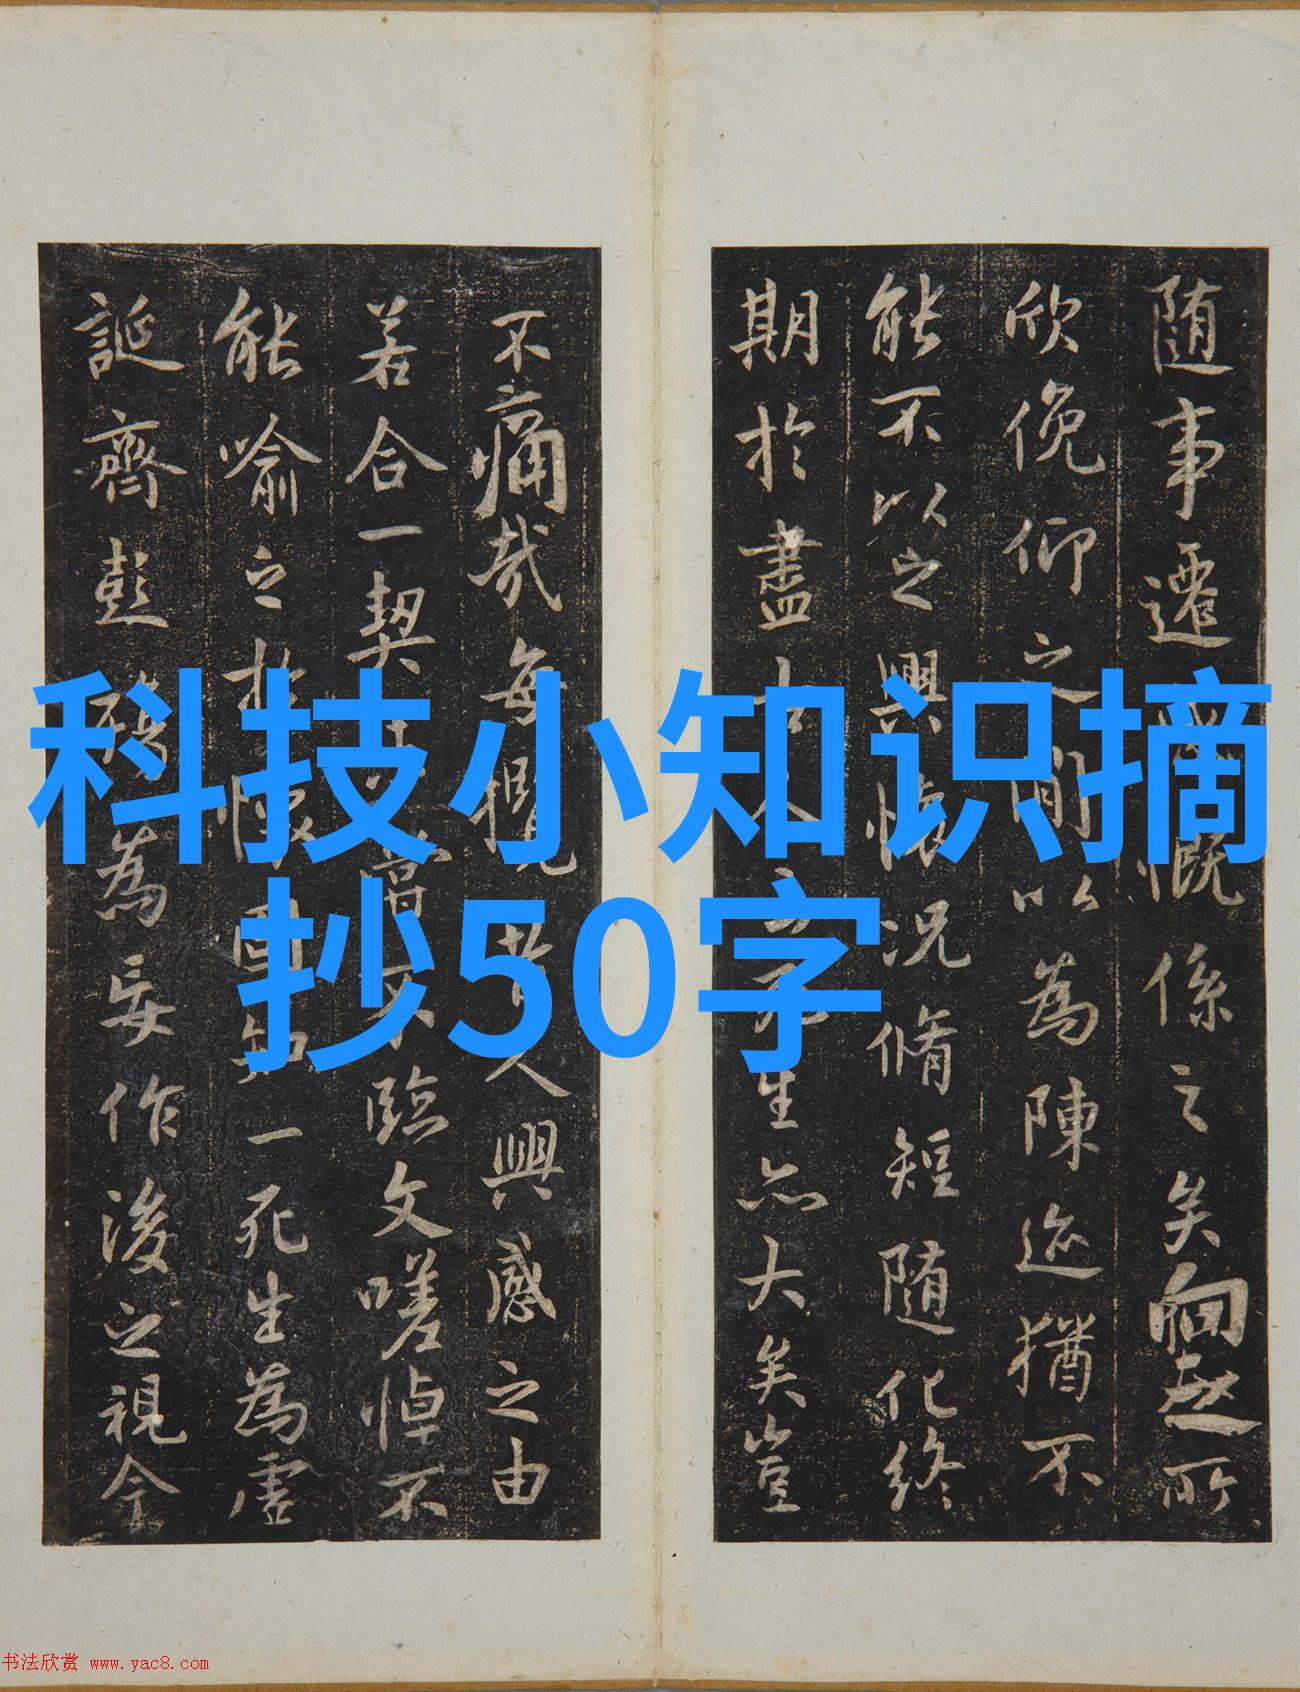 科技小知识摘
抄50字
随事遷感慨係之矣向之所
欣俛仰之間以為陳迹猶不
能不以之興懷況脩短随化終
期於盡古人云死生亦大矣豈
不痛哉每攬昔人興感之由
若合一契未嘗不臨文嗟悼不
能喻之於懷固知一死生為虛
誕齊彭殤為妄作後之視今
书法欣赏 www.yac8.com